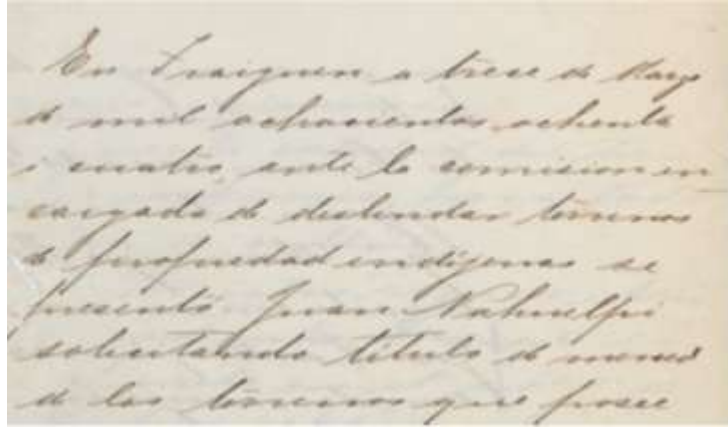 En Traiguen a trece de Mayo
de mil ochocientos ochenta
i cuatro, ante la comision en
cargada de deslindar terrenos
de propiedad indíjenas se
presentó Juan Nahuelpi
solicitando título de merced
de los terrenos que posee